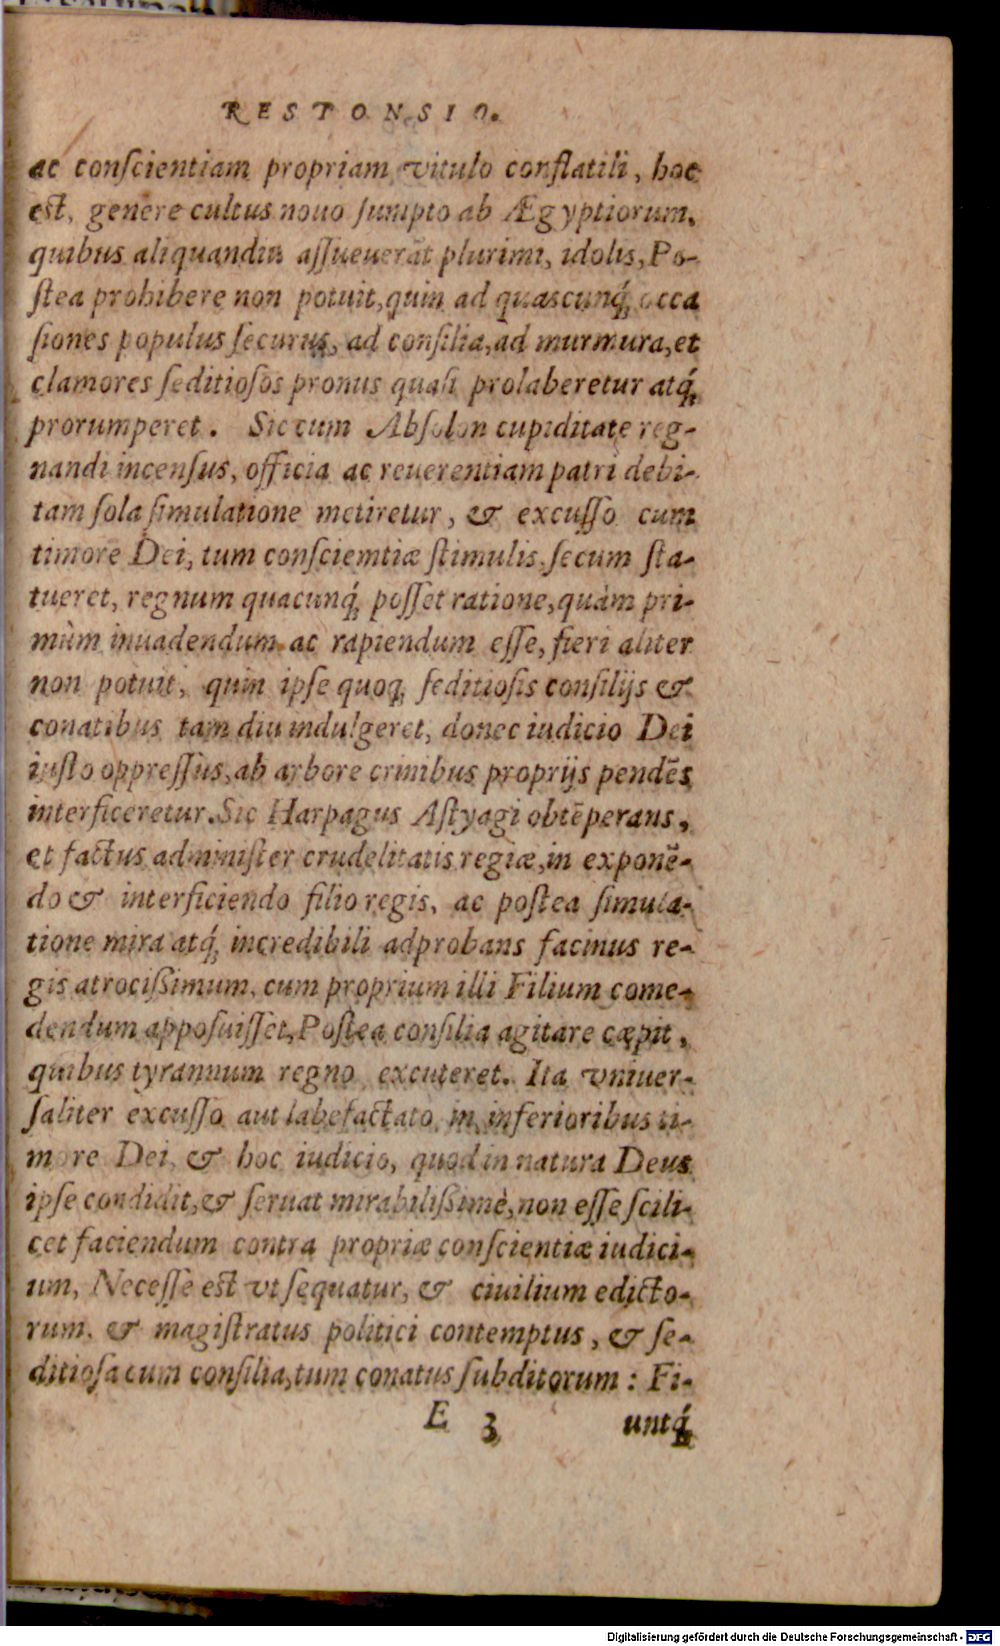 RESPONSIO.
ac conſcientiam propriam vitulo conflatili, hoc
est, genere cultus nouo ſumpto ab Ægyptiorum,
quibus aliquandiu aſſueuerāt plurimi, idolis, Po-
ſtea prohibere non potuit, quin ad quascunq́; occa
ſiones populus ſecurus, ad conſilia, ad murmura, et
clamores ſeditioſos pronus quaſi prolaberetur atq́;
prorumperet. Sic cum Abſolon cupiditate reg-
nandi incenſus, officia ac reuerentiam patri debi-
tam ſola ſimulatione metiretur, & excuſſo cum
timore Dei, tum conſciemtiæ ſtimulis, ſecum ſta-
tueret, regnum quacunq́; poſſet ratione, quàm pri-
mùm inuadendum ac rapiendum eſſe, fieri aliter
non potuit, quin ipſe quoq; ſeditioſis conſilijs &
conatibus tam diu indulgeret, donec iudicio Dei
iuſto oppreſſus, ab arbore crinibus proprijs pendēs
interficeretur. Sic Harpagus Aſtyagi obtēperans,
et factus adminiſter crudelitatis regiæ, in exponē-
do & interficiendo filio regis, ac poſtea ſimula-
tione mira atq́; incredibili adprobans facinus re-
gis atrocißimum, cum proprium illi Filium come-
dendum appoſuiſſet, Poſtea conſilia agitare cæpit,
quibus tyrannum regno excuteret. Ita vniuer-
ſaliter excuſſo aut labefactato in inferioribus ti-
more Dei, & hoc iudicio, quod in natura Deus
ipſe condidit, & ſeruat mirabilißimè, non eſſe ſcili-
cet faciendum contra propriæ conſcientiæ iudici-
um, Neceſſe est vt ſequatur, & ciuilium edicto-
rum, & magiſtratus politici contemptus, & ſe-
ditioſa cum conſilia, tum conatus ſubditorum: Fi-
E 3 untq́;
Digitalisierung gefördert durch die Deutsche Forschungsgemeinschaft - DFG